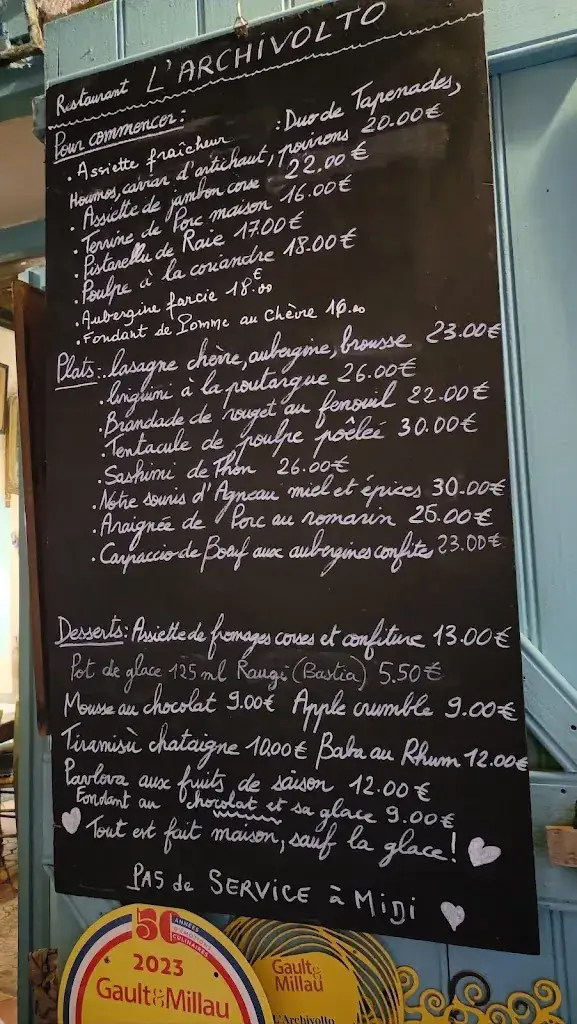 Restaurant L'ARCHIVOLTO
Pour commencer:
. Assiette fraîcheur : Duo de Tapenades,
Houmos, caviar d'artichaut, poivrons 20.00€
. Assiette de jambon corse 22.00€
. Terrine de Porc maison 16.00€
. Pistarellu de Raie 17.00€
. Poulpe à la coriandre 18.00€
. Aubergine farcie 18.00€
. Fondant de Pomme au Chèvre
Plats: . lasagne chèvre, aubergine, brousse 23.00€
. linguini à la poutargue 26.00€
. Brandade de rouget au fenouil 22.00€
. Tentacule de poulpe poêlée 30.00€
. Sashimi de Thon 26.00€
. Notre souris d'Agneau miel et épices 30.00€
. Araignée de Porc au romarin 26.00€
. Carpaccio de Boeuf aux aubergines confites 23.00€
Desserts: Assiette de fromages corses et confiture 13.00€
Pot de glace 125 ml Raugi (Bastia) 5.50€
Mousse au chocolat 9.00€ Apple crumble 9.00€
Tiramisù chataigne 10.00€ Baba au Rhum 12.00€
Pavlova aux fruits de saison 12.00€
Fondant au chocolat et sa glace 9.00€
Tout est fait maison, sauf la glace!
PAS de SERVICE à MiDi
50 ANNÉES D'ÉMOTIONS CULINAIRES
2023
Gault&Millau
Gault&Millau
L'Archivolto